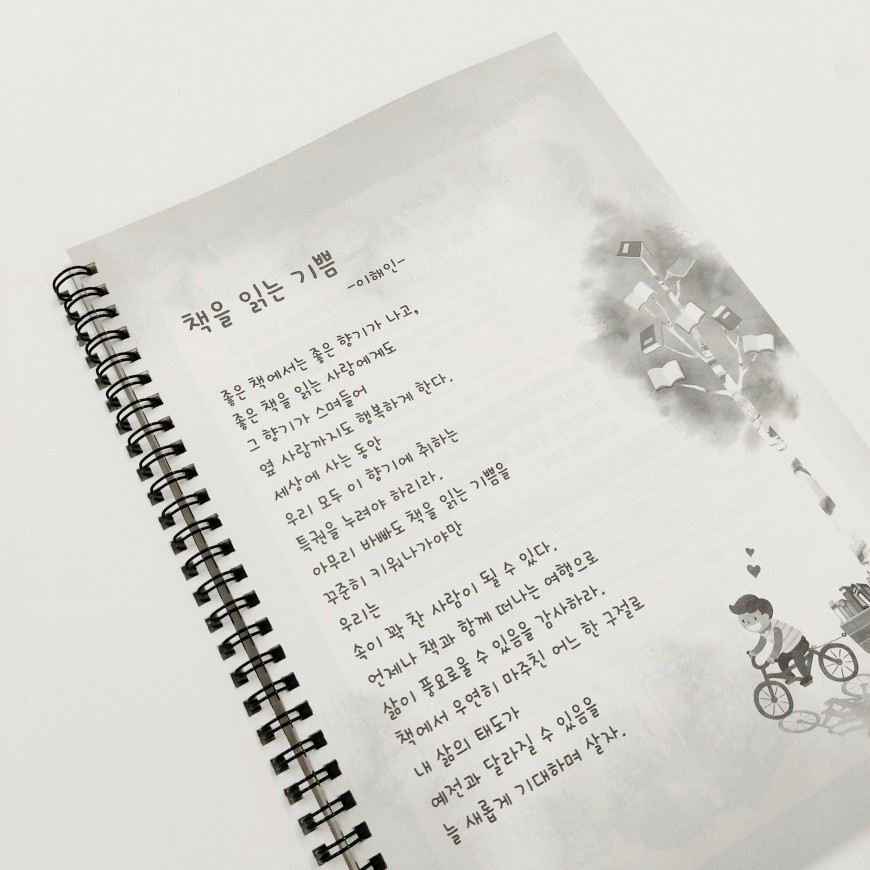 책을 읽는 기쁨
-이해인-
좋은 책에서는 좋은 향기가 나고,
좋은 책을 읽는 사람에게도
그 향기가 스며들어
옆 사람까지도 행복하게 한다.
세상에 사는 동안
우리 모두 이 향기에 취하는
특권을 누려야 하리라.
아무리 바빠도 책을 읽는 기쁨을
꾸준히 키워나가야만
우리는
속이 꽉 찬 사람이 될 수 있다.
언제나 책과 함께 떠나는 여행으로
삶이 풍요로울 수 있음을 감사하라.
책에서 우연히 마주친 어느 한 구절로
내 삶의 태도가
예전과 달라질 수 있음을
늘 새롭게 기대하며 살자.